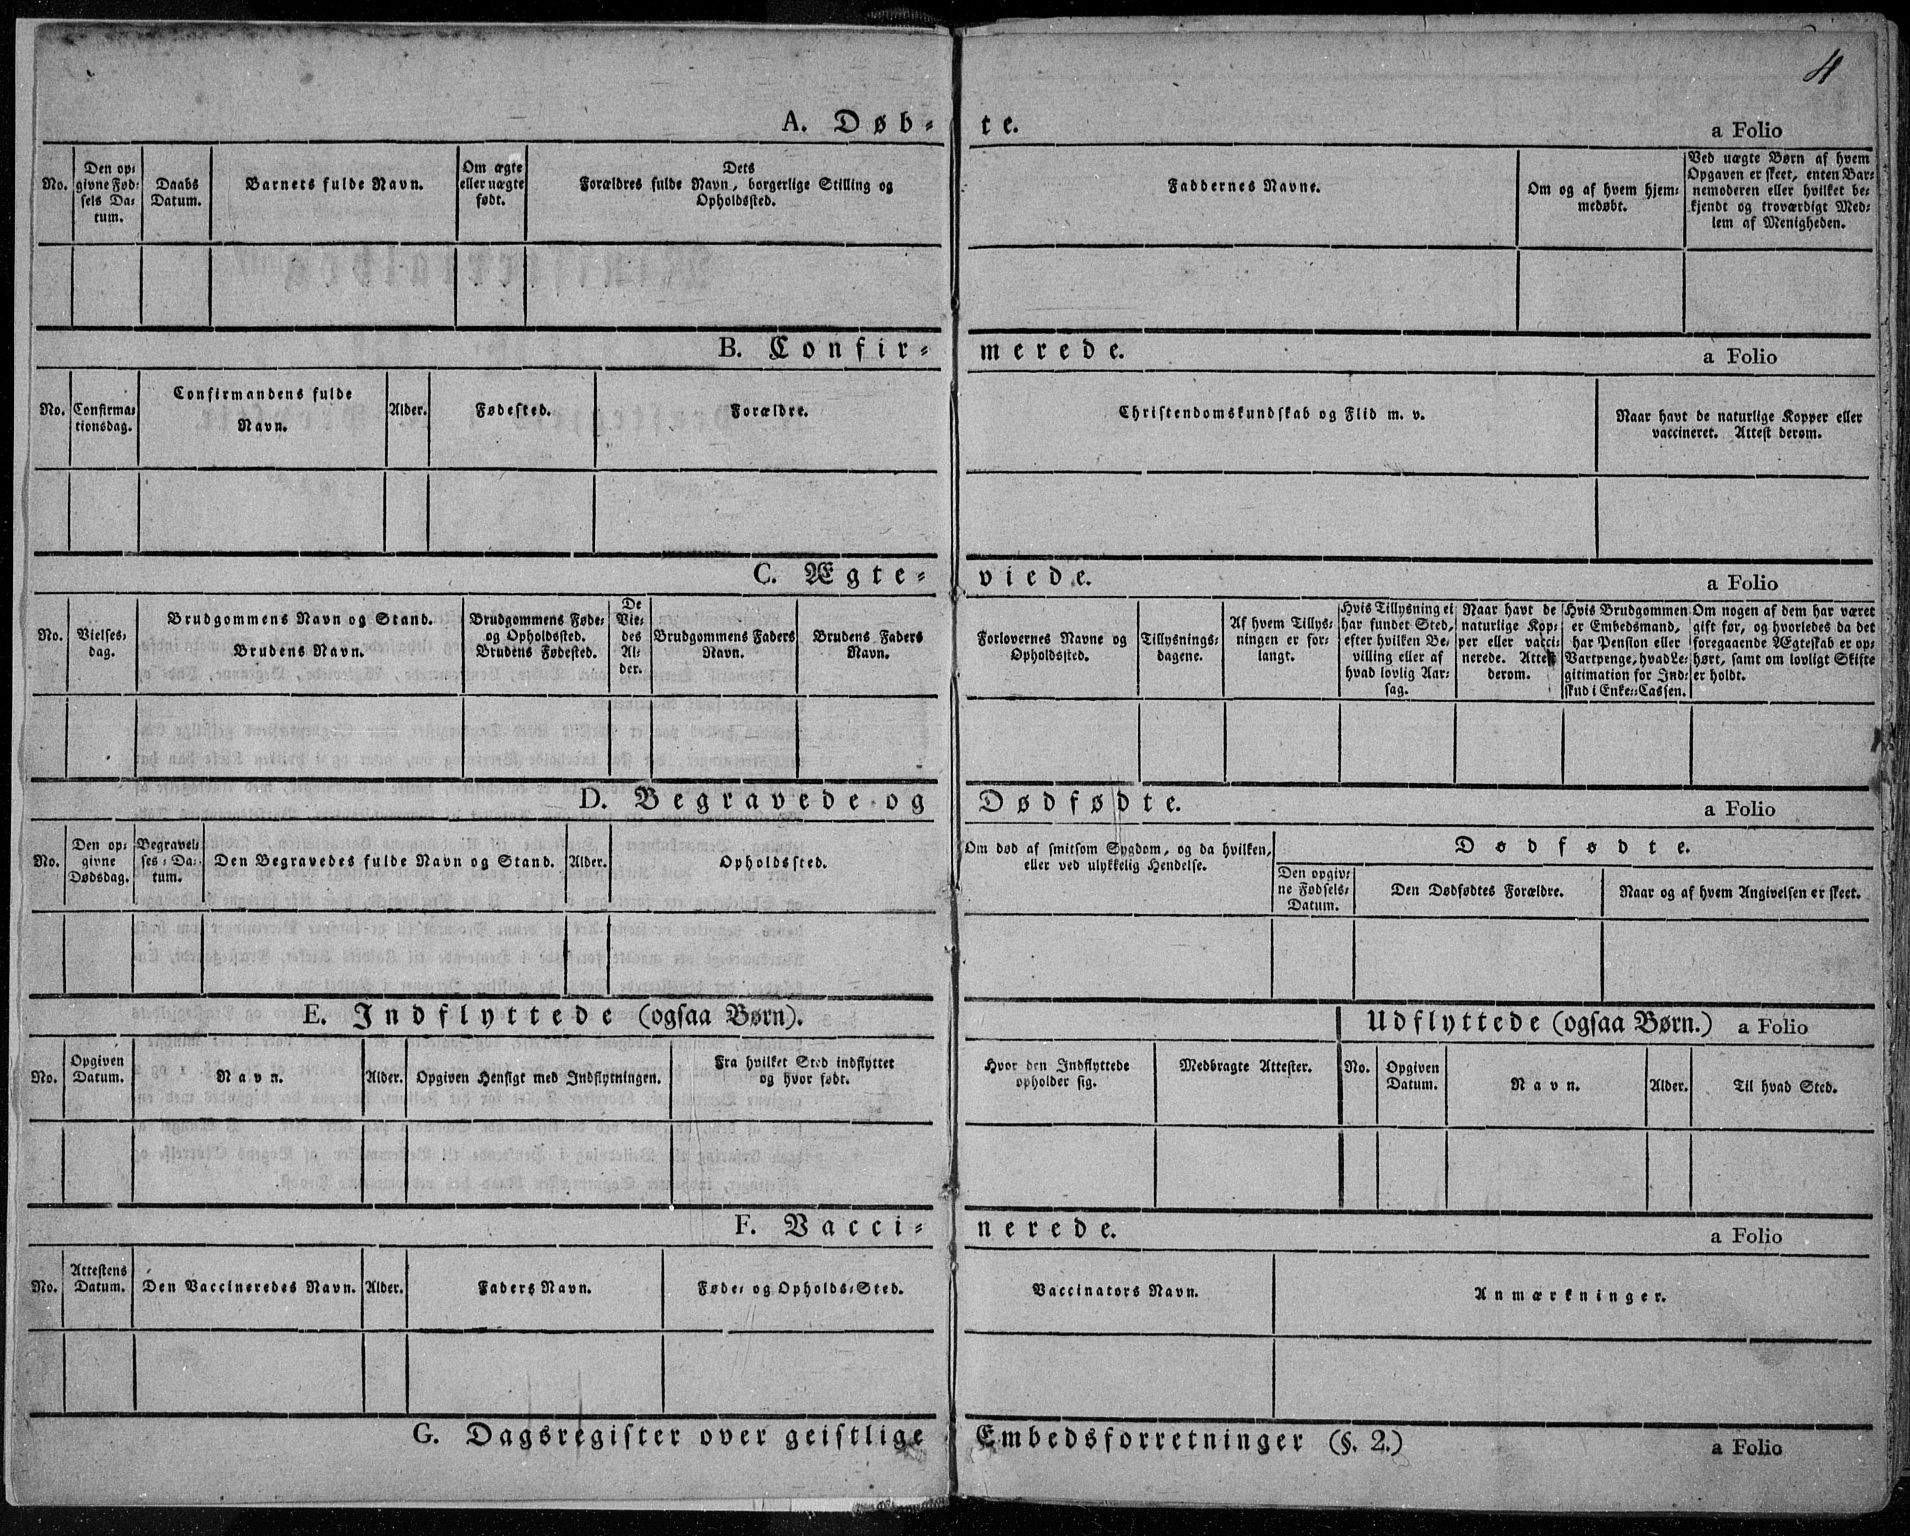 4
A. Døb- te. a Folio
No.
Den op-
givne Fød-
sels Da-
tum.
Daabs
Datum.
Barnets fulde Navn.
Om ægte
eller uægte
født.
Dets
Forældres fulde Navn, borgerlige Stilling og
Opholdssted.
Faddernes Navne.
Om og af hvem hjem-
medøbt.
Ved uægte Børn af hvem
Opgaven er skeet, enten Bar-
nemoderen eller hvilket be-
kjendt og troværdigt Med-
lem af Menigheden.
B. Confir- merede. a Folio
No.
Confirma-
tionsdag.
Confirmandens fulde
Navn.
Alder.
Fødested.
Forældre.
Christendomskundskab og Flid m. v.
Naar havt de naturlige Kopper eller
vaccineret. Attest derom.
C. Ægte- viede. a Folio
No.
Vielses-
dag.
Brudgommens Navn og Stand.
Brudens Navn.
Brudgommens Føde-
og Opholdssted.
Brudens Fødested.
De
Vie-
des
Al-
der.
Brudgommens Faders
Navn.
Brudens Faders
Navn.
Forlovernes Navne og
Opholdssted.
Tillysnings-
dagene.
Af hvem Tillys-
ningen er for-
langt.
Hvis Tillysning ei
har fundet Sted,
efter hvilken Be-
villing eller af
hvad lovlig Aar-
sag.
Naar havt de
naturlige Kop-
per eller vacci-
nerede. Attest
derom.
Hvis Brudgommen
er Embedsmand,
har Pension eller
Vartpenge, hvad Le-
gitimation for Ind-
skud i Enke-Cassen.
Om nogen af dem har været
gift før, og hvorledes da det
foregaaende Ægteskab er op-
hørt, samt om lovligt Skifte
er holdt.
D. Begravede og Dødfødte. a Folio
No.
Den op-
givne
Dødsdag.
Begravel-
ses-Da-
tum.
Den Begravedes fulde Navn og Stand.
Alder.
Opholdssted.
Om død af smitsom Sygdom, og da hvilken,
eller ved ulykkelig Hendelse.
Dødfødte.
Den opgiv-
ne Fødsels-
Datum.
Den Dødfødtes Forældre.
Naar og af hvem Angivelsen er skeet.
E. Indflyttede (ogsaa Børn). Udflyttede (ogsaa Børn.) a Folio
No.
Opgiven
Datum.
Navn.
Alder.
Opgiven Hensigt med Indflytningen.
Fra hvilket Sted indflyttet
og hvor født.
Hvor den Indflyttede
opholder sig.
Medbragte Attester.
No.
Opgiven
Datum.
Navn.
Alder.
Til hvad Sted.
F. Vacci- nerede. a Folio
No.
Attestens
Datum.
Den Vaccineredes Navn.
Alder.
Faders Navn.
Føde- og Opholds-Sted.
Vaccinators Navn.
Anmærkninger.
G. Dagsregister over geistlige Embedsforretninger (§. 2.) a Folio